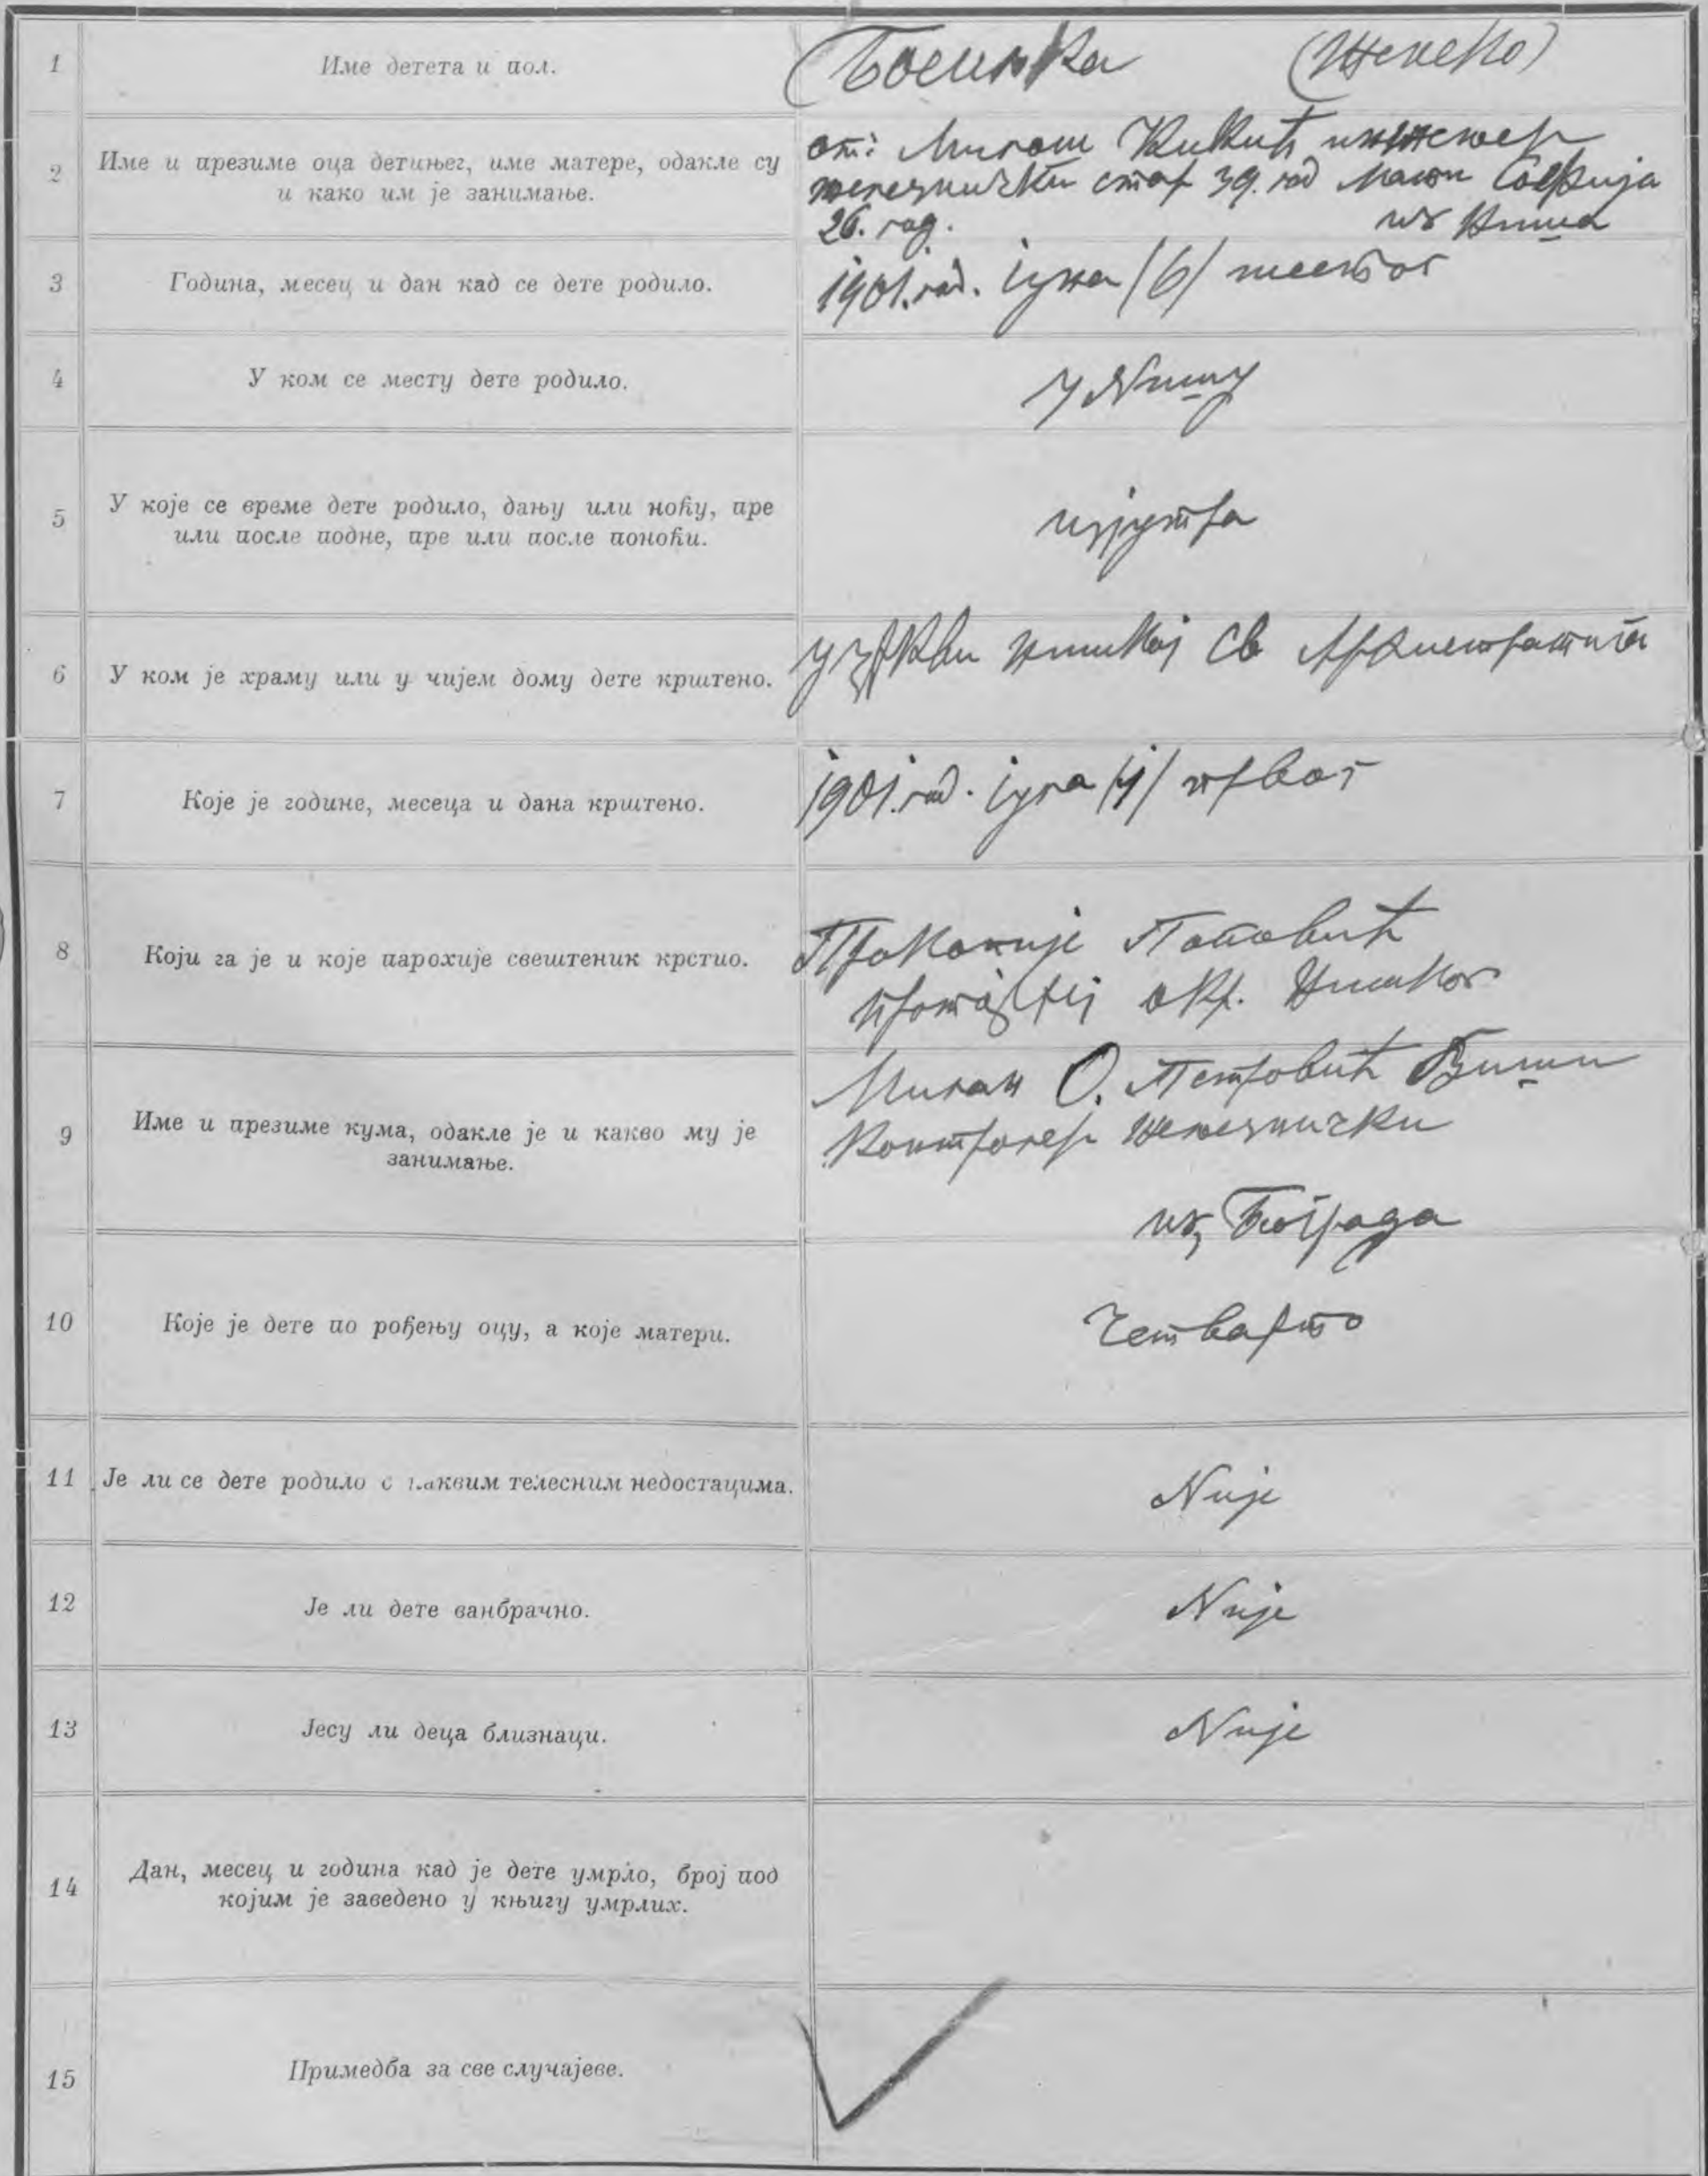 1 Име детета и пол. Босиљка (Женско)
2 Име и презиме оца детињег, име матере, одакле су
и како им је занимање.
от: Милош инжењер
железнички стар 39. год мати Софија
26. год. из Ниша
3 Година, месец и дан кад се дете родило. 1901. год. Јуна /6/ шестог
4 У ком се месту дете родило. у Нишу
5 У које се време дете родило, дању или ноћу, пре
или после подне, пре или после поноћи.
изјутра
6 У ком је храму или у чијем дому дете крштено. у цркви нишкој Св Архистратига
7 Које је године, месеца и дана крштено. 1901. год. /1/ првог
8 Који га је и које парохије свештеник крстио. Прокопије Поповић
окр. Нишког
9 Име и презиме кума, одакле је и какво му је
занимање.
Милан О. Петровић Виши
Контролер железнички
из Београда
10 Које је дете по рођењу оцу, а које матери. Четварто
11 Је ли се дете родило с каквим телесним недостацима. Није
12 Је ли дете ванбрачно. Није
13 Јесу ли деца близнаци. Није
14 Дан, месец и година кад је дете умрло, број под
којим је заведено у књигу умрлих.
15 Примедба за све случајеве.